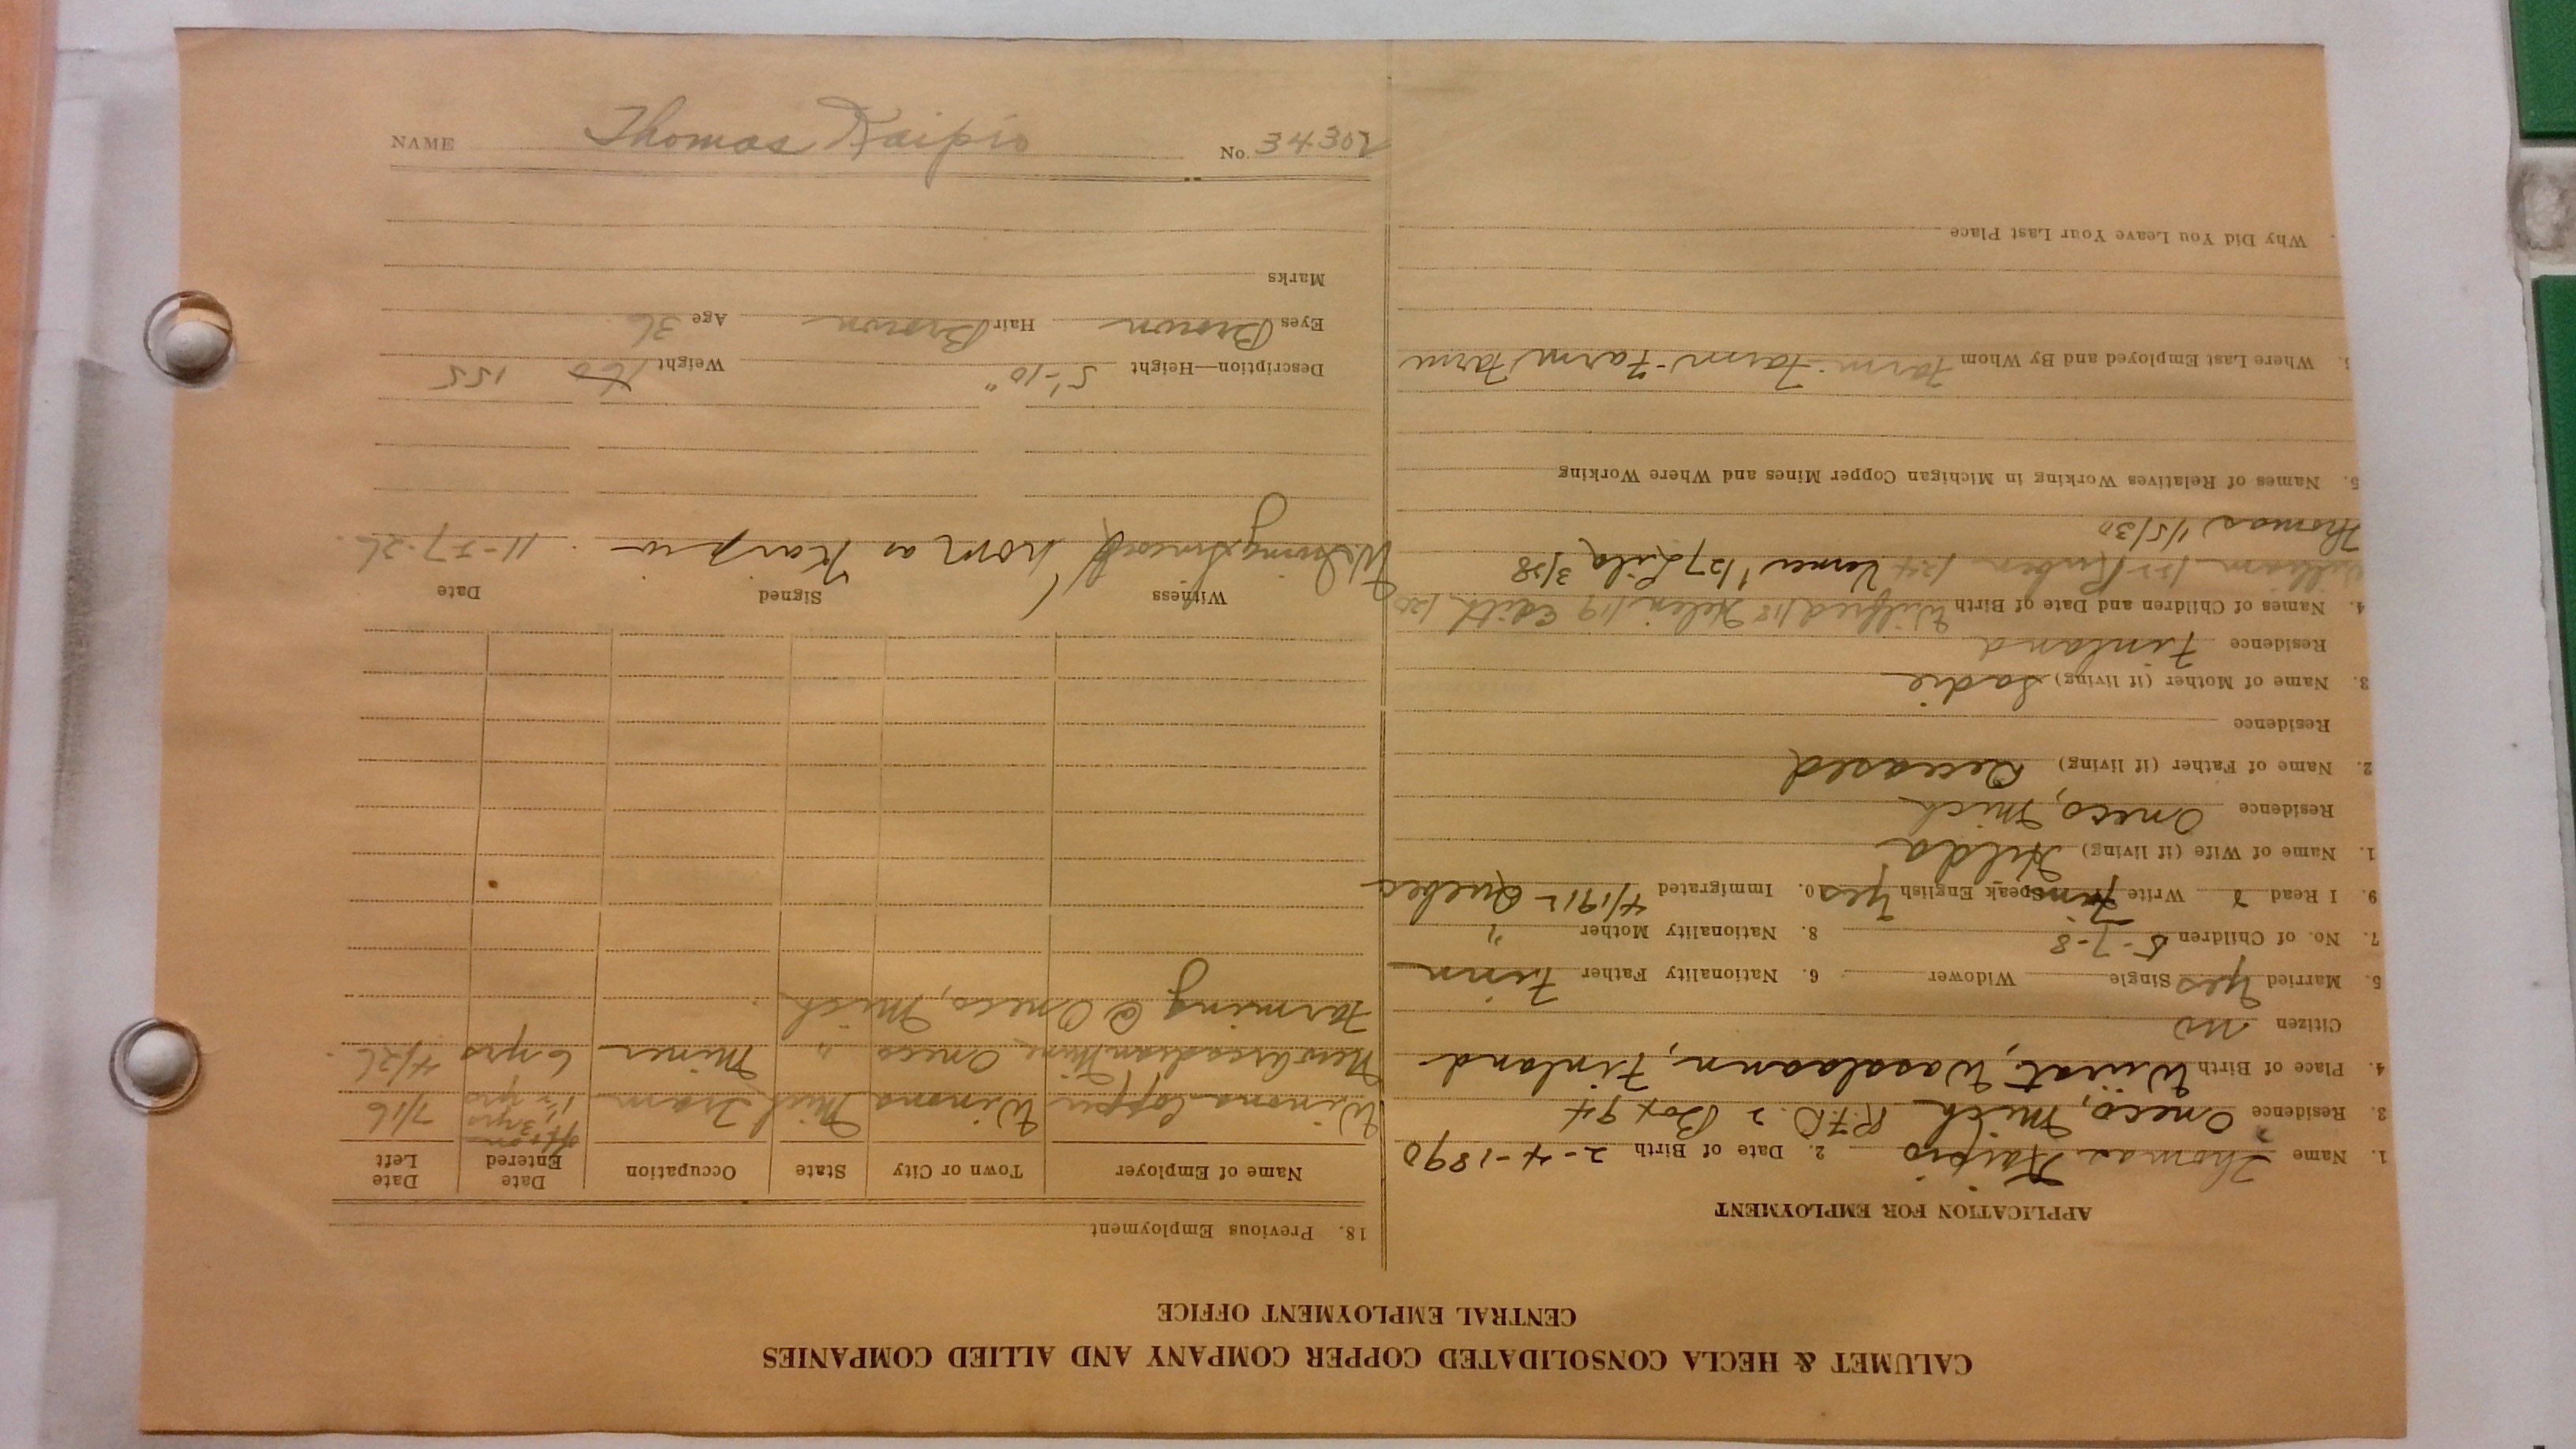 CALUMET & HECLA CONSOLIDATED COPPER COMPANY AND ALLIED COMPANIES
CENTRAL EMPLOYMENT OFFICE
APPLICATION FOR EMPLOYMENT
1. Name Thomas Kaipio 2. Date of Birth 2-4-1890
3. Residence Oneco, Mich R.F.D. 2 Box 94
4. Place of Birth Wiirat, Finland
Citizen no
5. Married Yes Single Widower 6. Nationality Father Finn
7. No. of Children 5-7-8 8. Nationality Mother "
9. I Read & Write Finn Speak English Yes 10. Immigrated 4/1912 Quebec
1. Name of Wife (if living) Hilda
Residence Oneco, Mich
2. Name of Father (if living) Deceased
Residence
3. Name of Mother (if living) Sadie
Residence Finland
4. Names of Children and Date of Birth Wilfred /18 Helen /19 Edith /20
William /22 Ruben /24 1/27 Lila 3/28
Thomas 1/5/30
5. Names of Relatives Working in Michigan Copper Mines and Where Working
Where Last Employed and By Whom Farm-Farm-Farm Farm
Why Did You Leave Your Last Place
18. Previous Employment
Name of Employer Town or City State Occupation Date Entered Date Left
Winona Copper Winona Mich Tram 7/16
New Arcadian Mine Oneco " Miner 6 yrs 4/26
Farming @ Oneco, Mich
Witness Signed Date
Thomas Kaipio 11-
Description—Height 5'-10" Weight 160 155
Eyes Brown Hair Brown Age 36
Marks
NAME Thomas Kaipio No. 34302